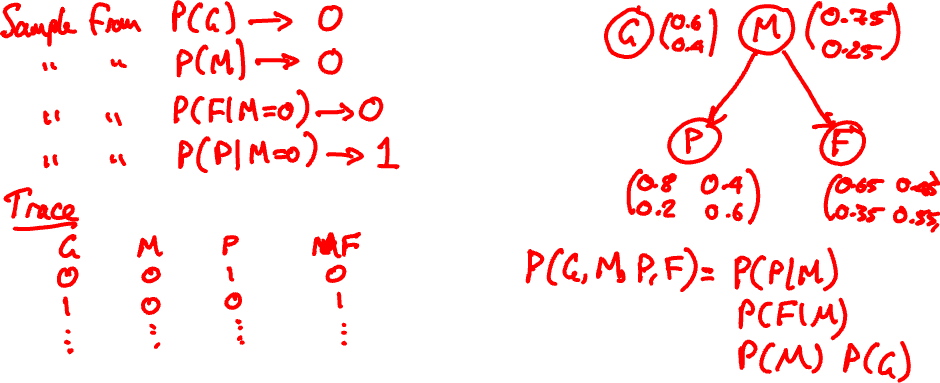 Sample From P(G) → 0
" " P(M) → 0
" " P(F|M=0) → 0
" " P(P|M=0) → 1
Trace
G M P F
0 0 1 0
1 0 0 1
⋮ ⋮ ⋮ ⋮
G (0.6 M (0.75
0.4) 0.25)
P F
(0.8 0.4 (0.65 0.45
0.2 0.6) 0.35 0.55)
P(G,M,P,F)= P(P|M)
P(F|M)
P(M) P(G)